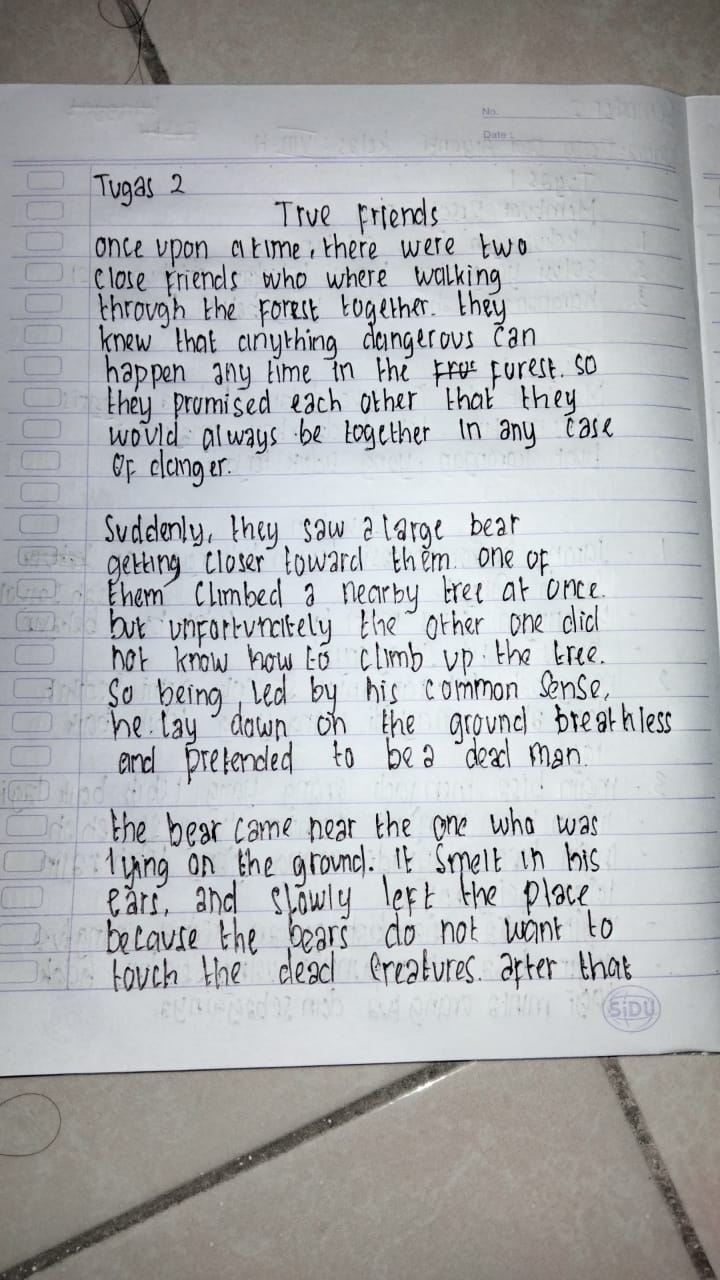 No.
Date:
Tugas 2
True friends
once upon a time, there were two
close friends who where walking
through the forest together. they
knew that anything dangerous can
happen any time in the forest. so
they promised each other that they
would always be together in any case
of danger.
Suddenly, they saw a large bear
getting closer toward them. one of
them climbed a nearby tree at once.
but unfortunately the other one did
not know how to climb up the tree.
So being led by his common sense,
he lay down on the ground breathless
and pretended to be a dead man.
the bear came near the one who was
lying on the ground. it smelt in his
ears, and slowly left the place
because the bears do not want to
touch the dead creatures. after that
SiDU